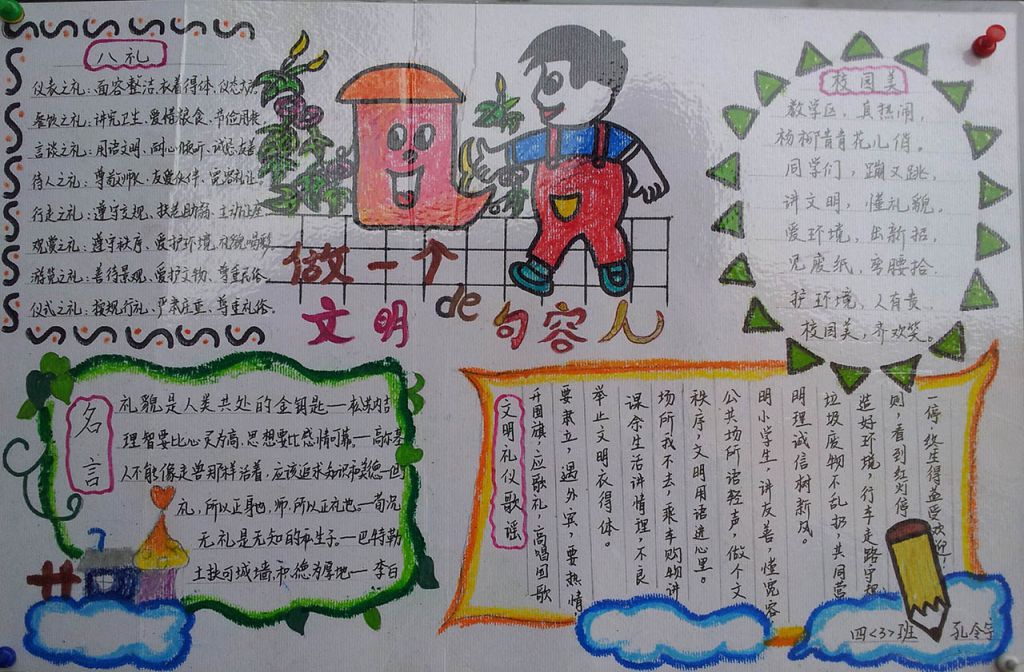 八礼
仪表之礼：面容整洁、衣着得体、仪态大方
餐饮之礼：讲究卫生、爱惜粮食、节俭用餐
言谈之礼：用语文明、耐心倾听、诚恳友善
待人之礼：尊敬师长、友爱伙伴、宽容礼让
行走之礼：遵守交规、扶老助弱、主动让座
观赏之礼：遵守秩序、爱护环境、礼貌喝彩
游览之礼：善待景观、爱护文物、尊重民俗
仪式之礼：按规行礼、严肃庄重、尊重礼俗
做一个
文明de句容人
校园美
教学区，真热闹，
杨柳青青花儿俏。
同学们，蹦又跳，
讲文明，懂礼貌，
爱环境，出新招，
见废纸，弯腰拾，
护环境，人有责，
校园美，齐欢笑。
名言
礼貌是人类共处的金钥匙—松苏内吉
理智要比心灵为高，思想要比感情可靠—高尔基
人不能像走兽那样活着，应该追求知识和美德—
礼，所以正身也，师，所以正礼也—荀况
无礼是无知的私生子—巴特勒
土扶可城墙，积德为厚地—李白
文明礼仪歌谣
升国旗，应敬礼，高唱国歌
要肃立，遇外宾，要热情，
举止文明衣得体。
课余生活讲情理，不良
场所我不去，乘车购物讲
秩序，文明用语进心里。
公共场所语轻声，做个文
明小学生，讲友善，懂宽容
明理诚信树新风。
垃圾废物不乱扔，共同营
造好环境，行车走路守规
则，看到红灯停
一停，终生得益受欢迎！
四<3>班